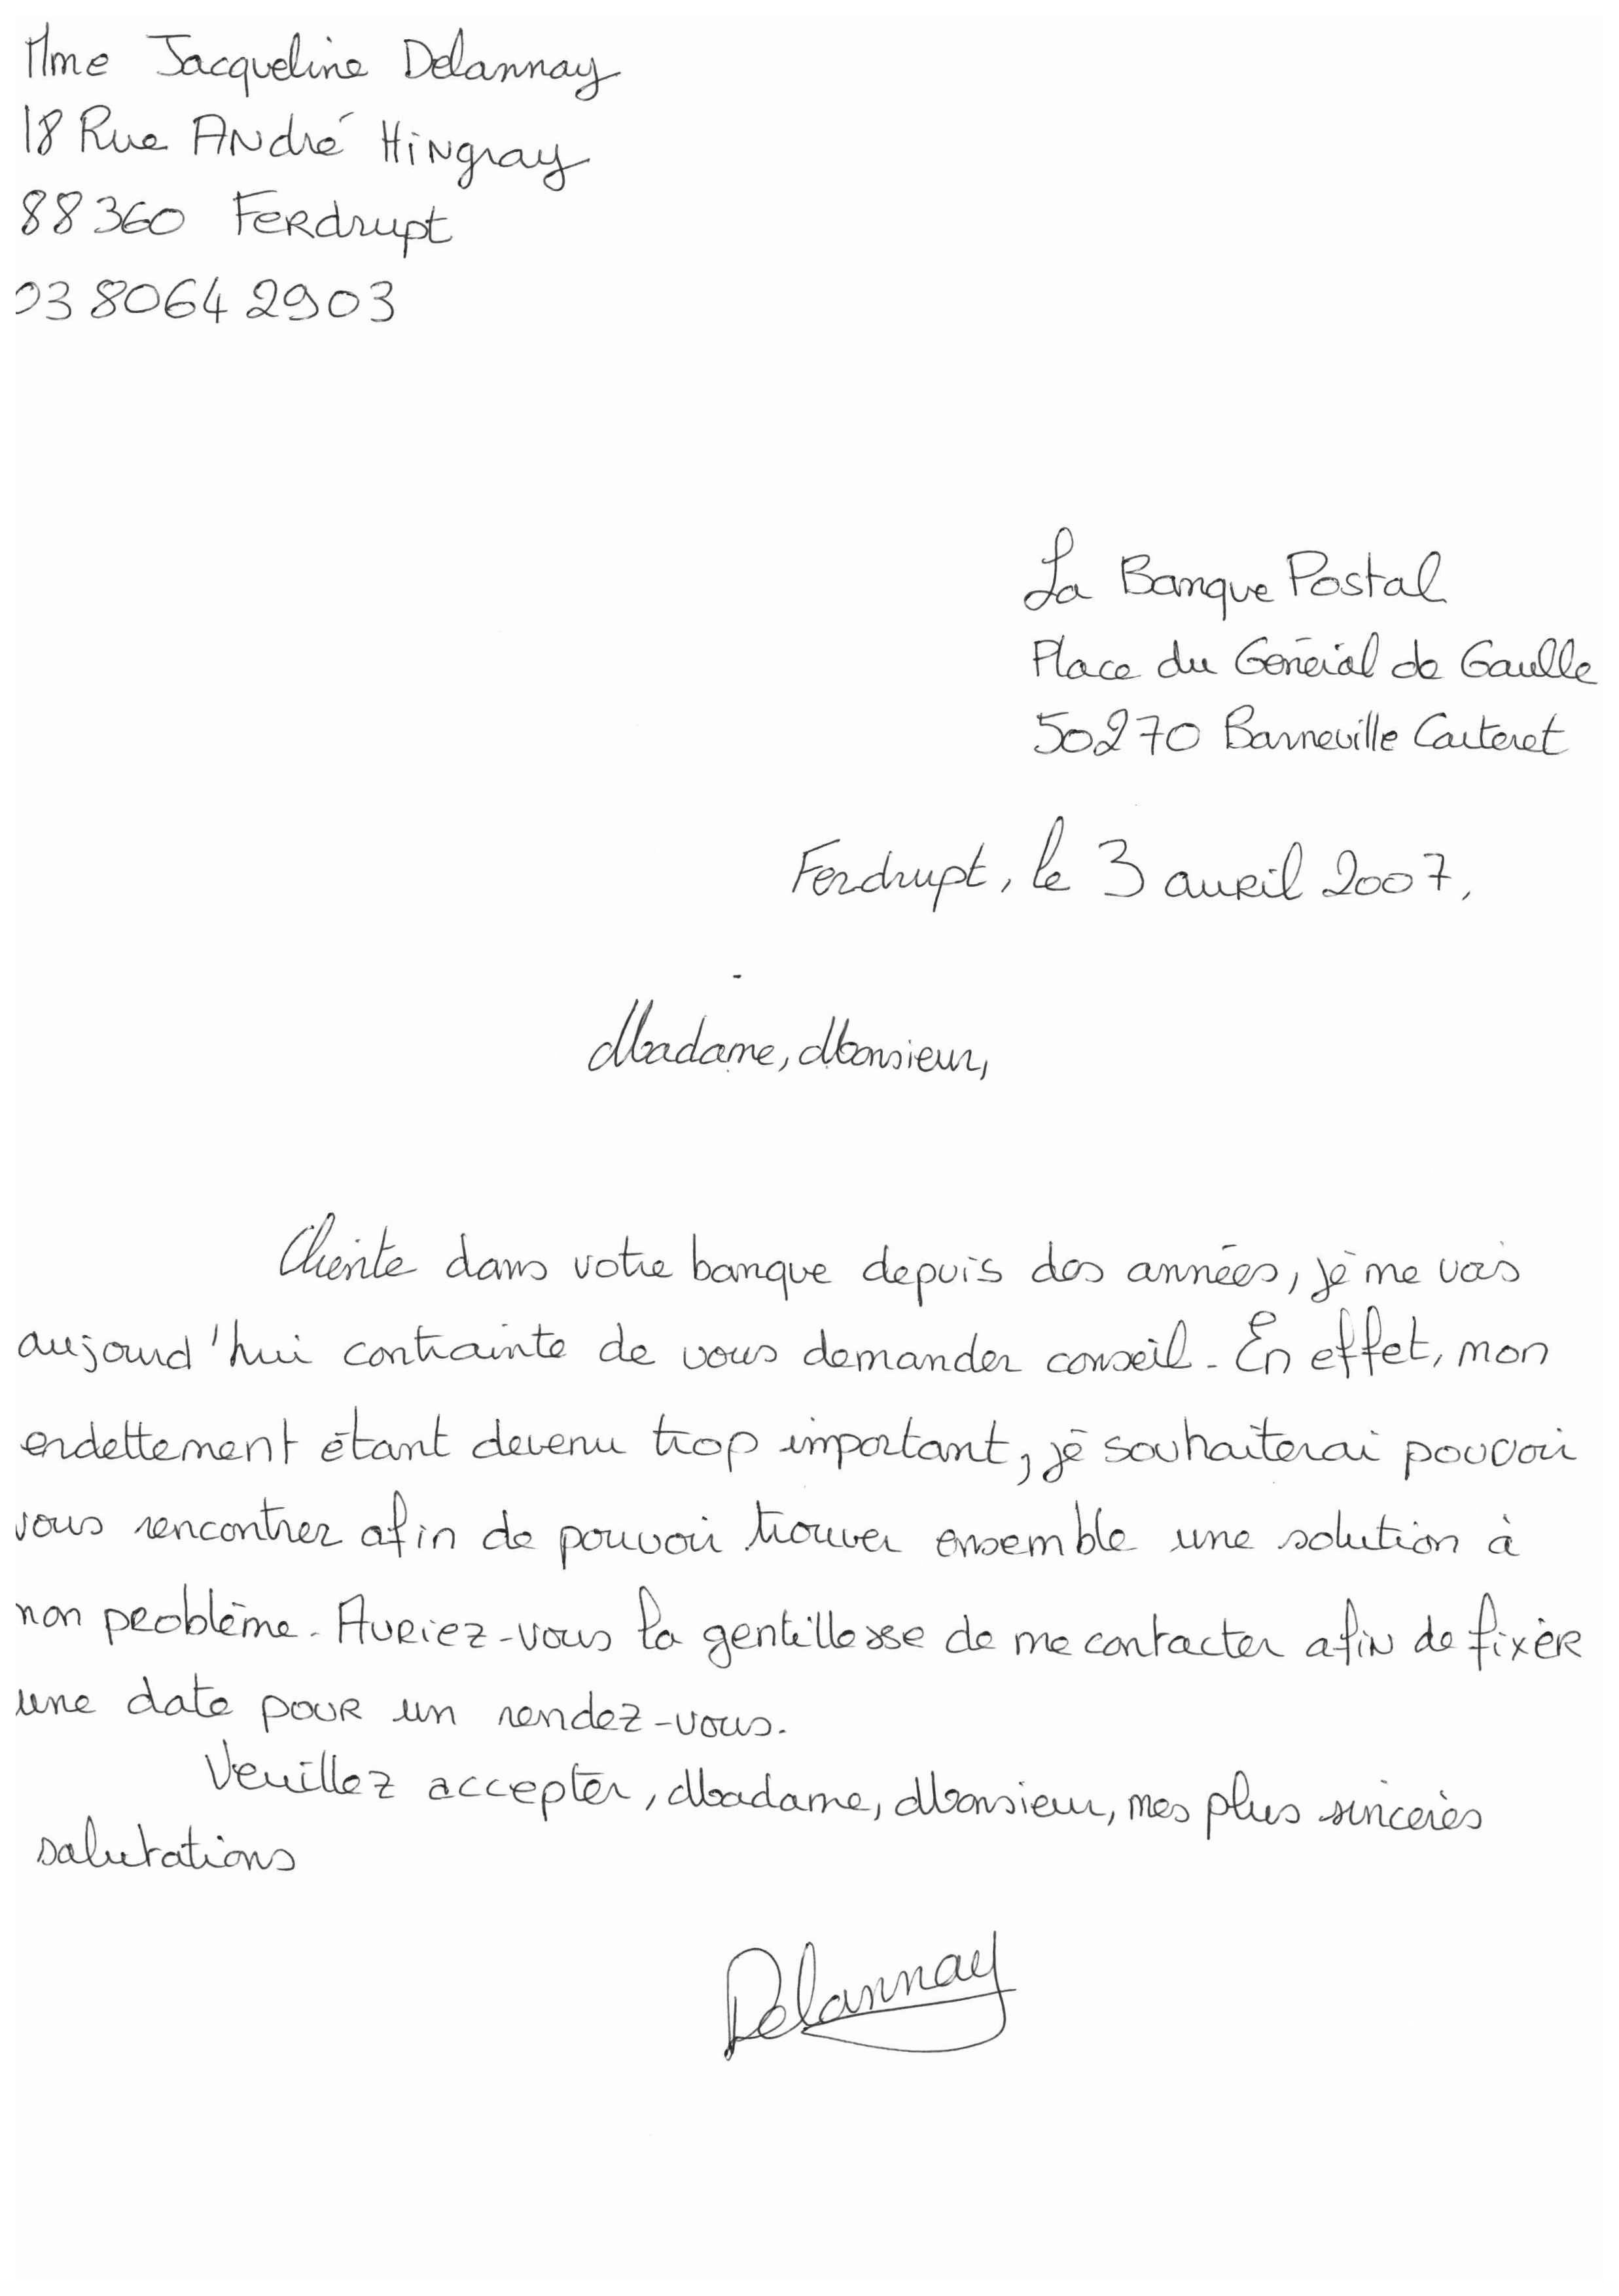 Mme Jacqueline Delannay
18 Rue André Hingray
88360 Ferdrupt
0380642903
La Banque Postal
Place du Général de Gaulle
50270 Barneville Carteret
Ferdrupt, le 3 avril 2007,
Madame, Monsieur,
Cliente dans votre banque depuis des années, je me vois
aujourd'hui contrainte de vous demander conseil. En effet, mon
endettement étant devenu trop important, je souhaiterai pouvoir
vous rencontrer afin de pouvoir trouver ensemble une solution à
mon problème. Auriez-vous la gentillesse de me contacter afin de fixer
une date pour un rendez-vous.
Veuillez accepter, Madame, Monsieur, mes plus sincères
salutations
Delannay